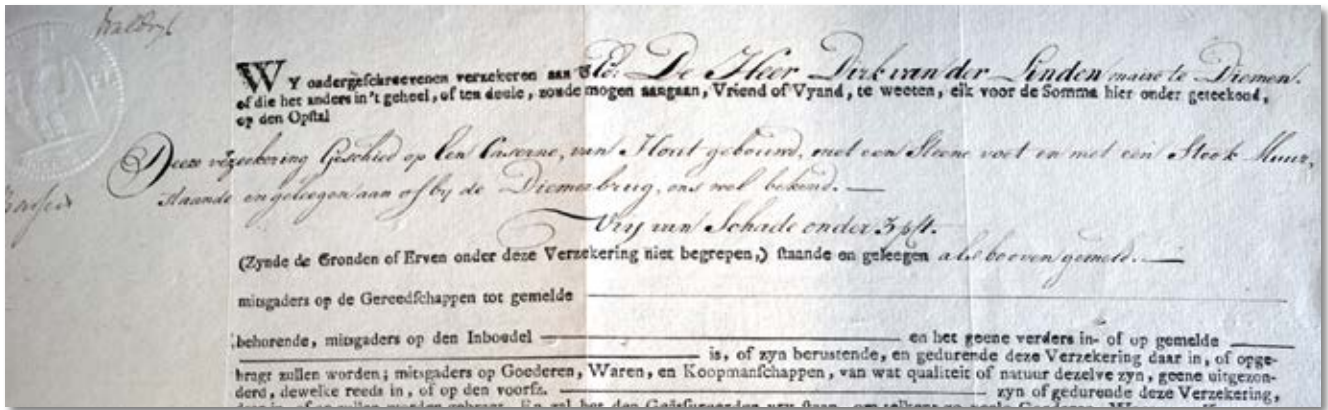 WY ondergeschreevenen verzekeren aan De Heer Dirk van der Linden maire te Diemen.
of die het anders in't geheel, of ten deele, zoude mogen aangaan, Vriend of Vyand, te weeten, elk voor de Somma hier onder geteekend,
op den Opstal
Deeze verzeekering Geschied op Een Caserne, van Hout gebouwd, met een Steene voet en met een Stook Muur,
staande en geleegen aan of by de Diemerbrug, ons wel bekend.
Vry van Schade onder 3 pCt.
(Zynde de Gronden of Erven onder deze Verzekering niet begrepen,) staande en geleegen als booven gemeld.
mitsgaders op de Gereedschappen tot gemelde
behorende, mitsgaders op den Inboedel en het geene verders in- of op gemelde
is, of zyn berustende, en gedurende deze Verzekering daar in, of opge-
bragt zullen worden; mitsgaders op Goederen, Waren, en Koopmanschappen, van wat qualiteit of natuur dezelve zyn, geene uitgezon-
derd, dewelke reeds in, of op den voorsz. zyn of gedurende deze Verzekering,